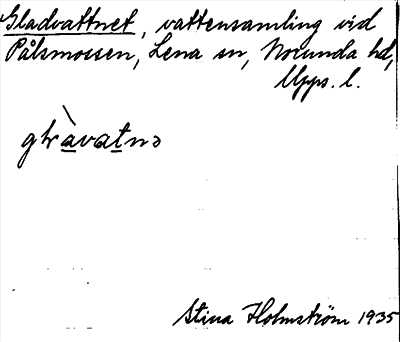 Gladvattnet, vattensamling vid
Pålsmossen, Lena sn, Norunda hd,
Upps. l.
glràvatnɔ
Stina Holmström 1935